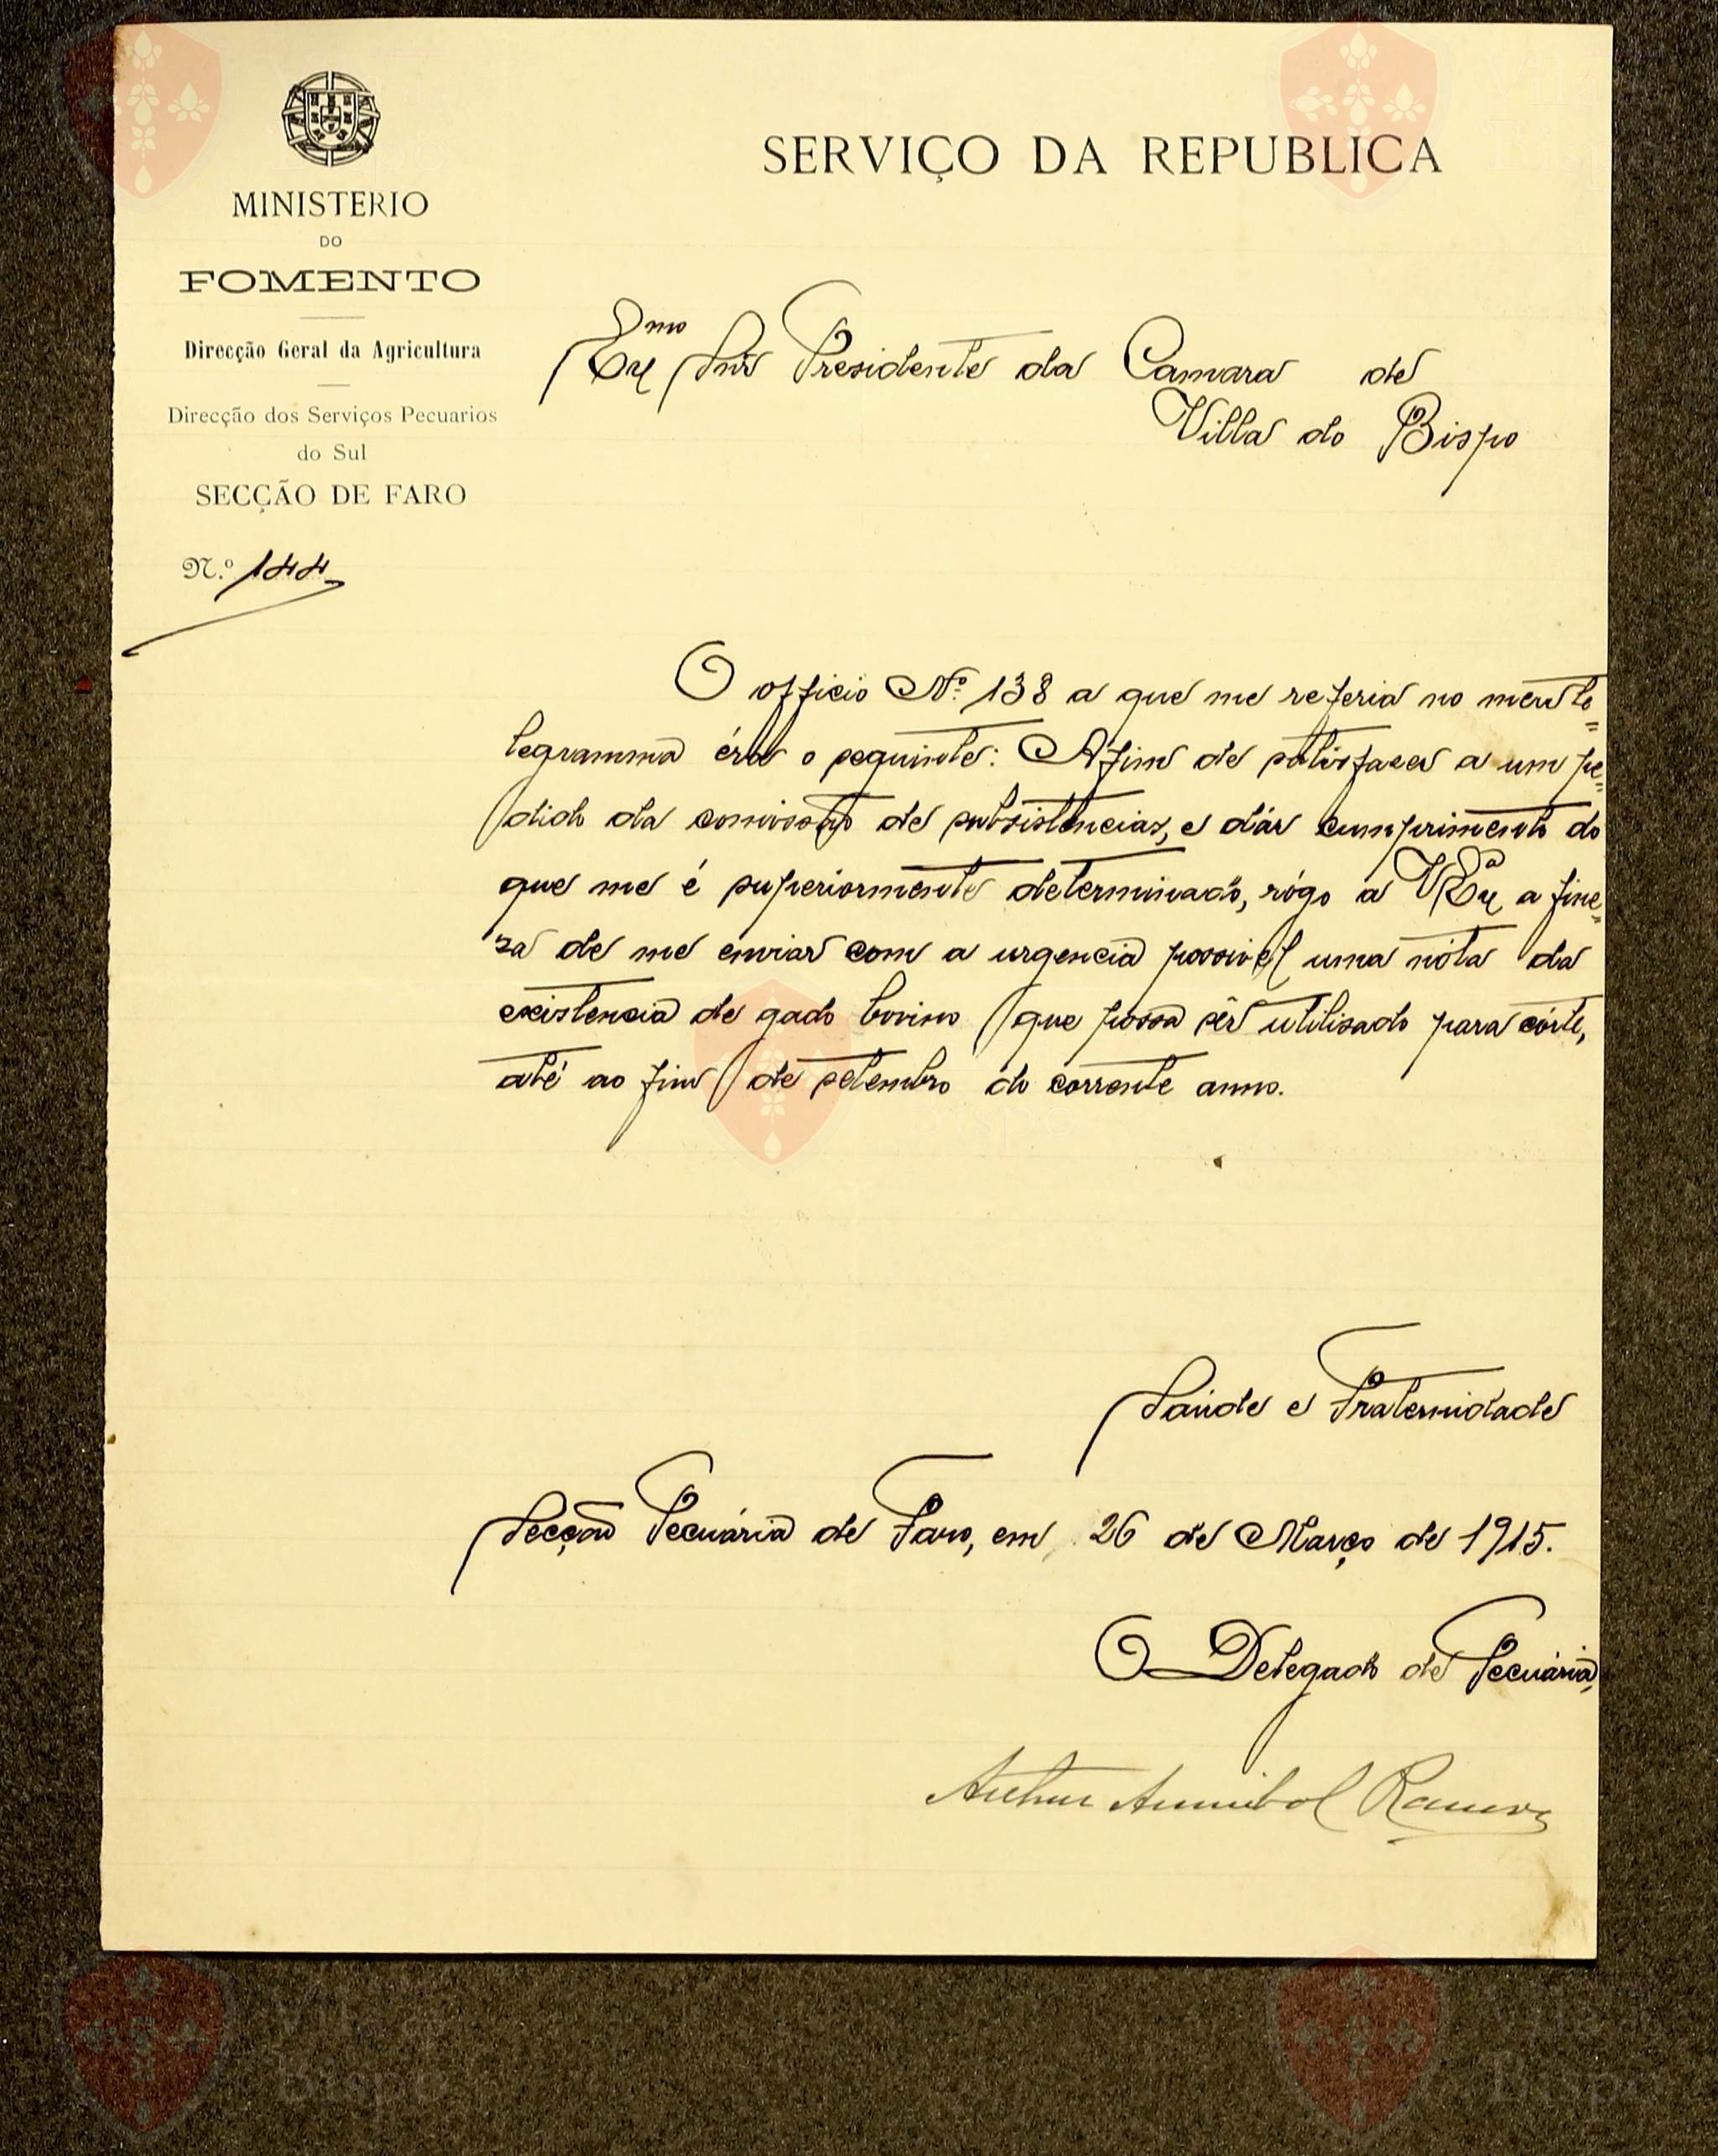 SERVIÇO DA REPUBLICA
MINISTERIO
DO
FOMENTO
Direcção Geral da Agricultura
Direcção dos Serviços Pecuarios
do Sul
SECÇÃO DE FARO
N.º 144
Exmo Snr Presidente da Camara de
Villa do Bispo
O officio Nº 138 a que me referia no meu te=
legramma éra o seguinte: Afim de satisfazer a um pe=
dido da comissão de subsistencias, e dár cumprimento do
que me é superiormente determinado, rógo a V Exª a fine=
za de me enviar com a urgencia possivel uma nóta da
existencia de gado bovino que possa sêr utilisado para córte,
até ao fim de setembro do corrente anno.
Saúde e Fraternidade
Secção Pecuária de Faro, em 26 de Março de 1915.
O Delegado de Pecuária,
Arthur Annibal Ramos
Bispo
Vila do
Bispo
Vila do
Bispo